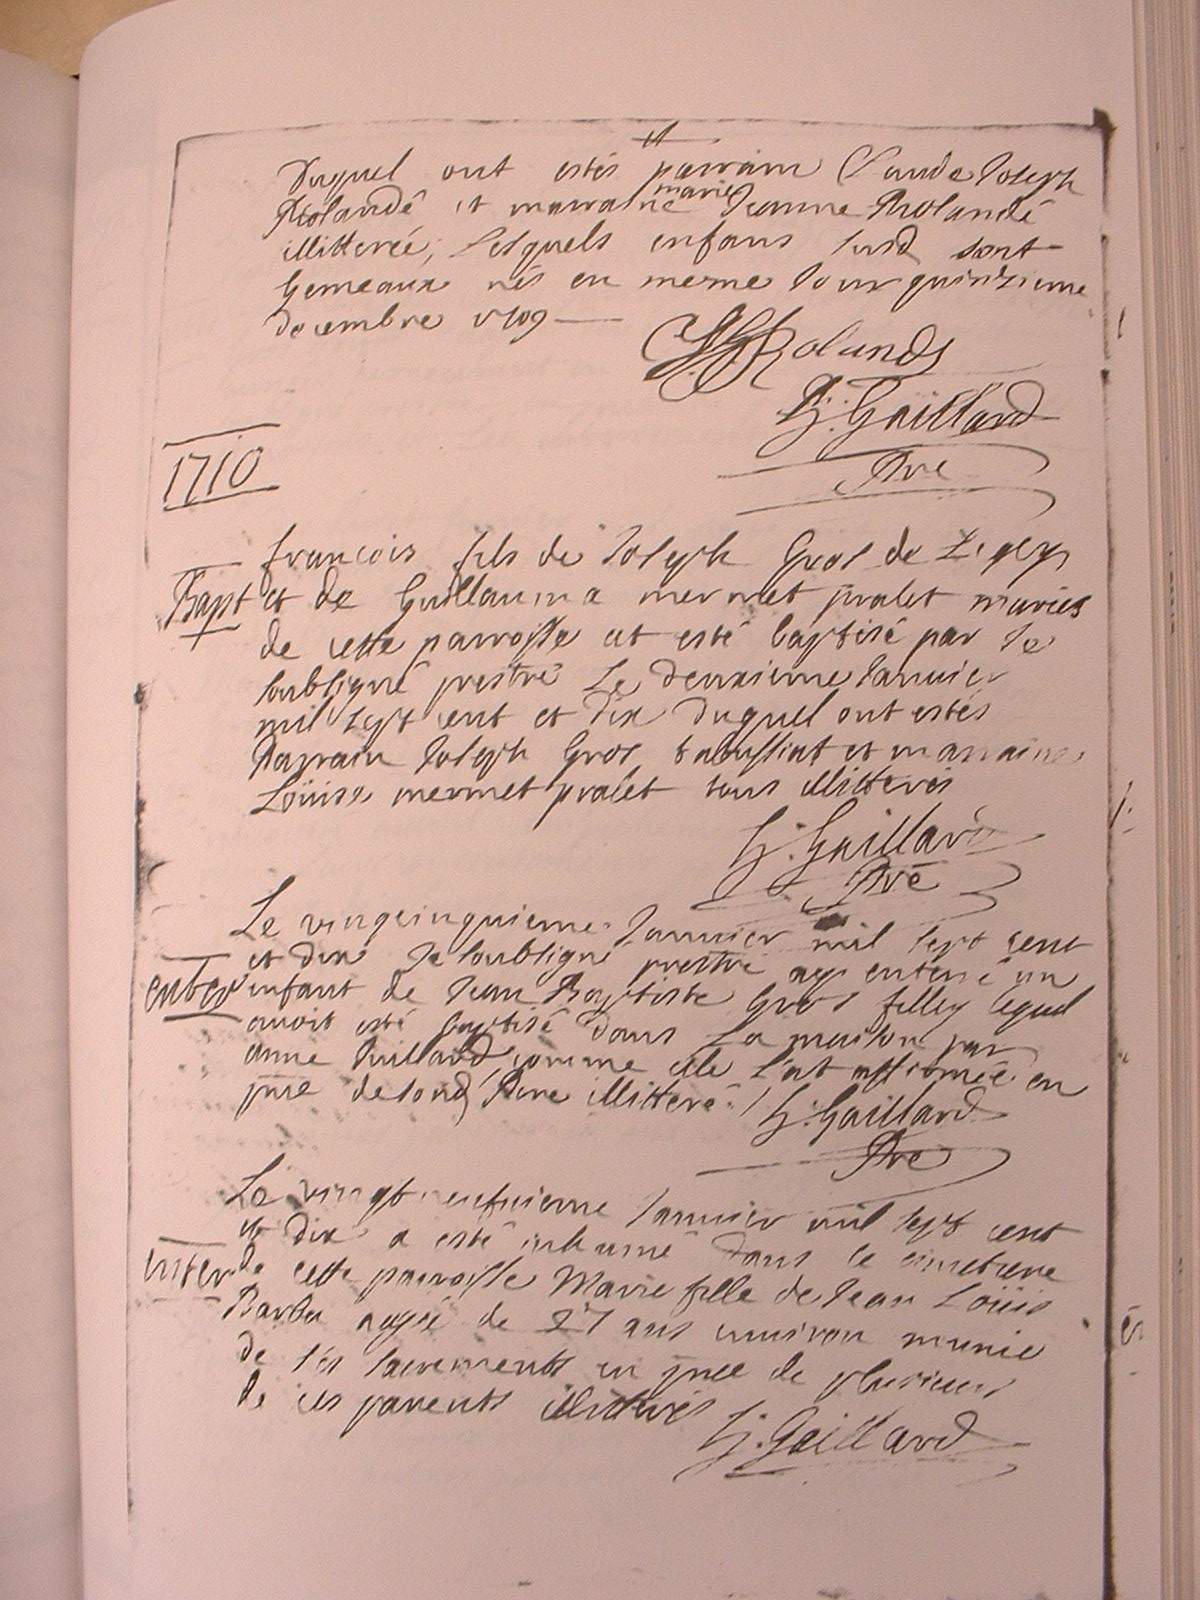 et
Duquel ont estés parrain Claude Joseph
Rolandé et marraine marie Jeanne Rolandé
illitterée, Lesquels enfans susd sont
Gemeaux nés en meme Jour quinzieme
decembre 1709
Rolande
G. Gaillard
Pre
1710
francois fils de Joseph Gros de
Bapt et de Guillauma mermet pralet mariés
de cette parroisse at esté baptisé par Je
soubsigné prestre Le deuxieme Januier
mil sept cent et dix Duquel ont estés
Parrain Joseph Gros et marraine
Loüise mermet pralet tous illitterés
G. Gaillard
Pre
Le vingcinquieme Januier mil sept cent
et dix Je soubsigné prestre ay enterré un
enter enfant de Jean Baptiste Gros filley lequel
auoit esté baptisé dans La maison par
anne Juillard, comme elle l'at affirmée en
pnce de Pere illitteré. G. Gaillard
Pre
Le vingt neufuieme Januier mil sept cent
et dix a esté inhumé dans le cimetiere
enter de cette parroisse Marie fille de Jean Loüis
Barbu aagée de 27 ans enuiron munie
de ses sacrements en pnce de plusieurs
de ces parents illitterés
G. Gaillard